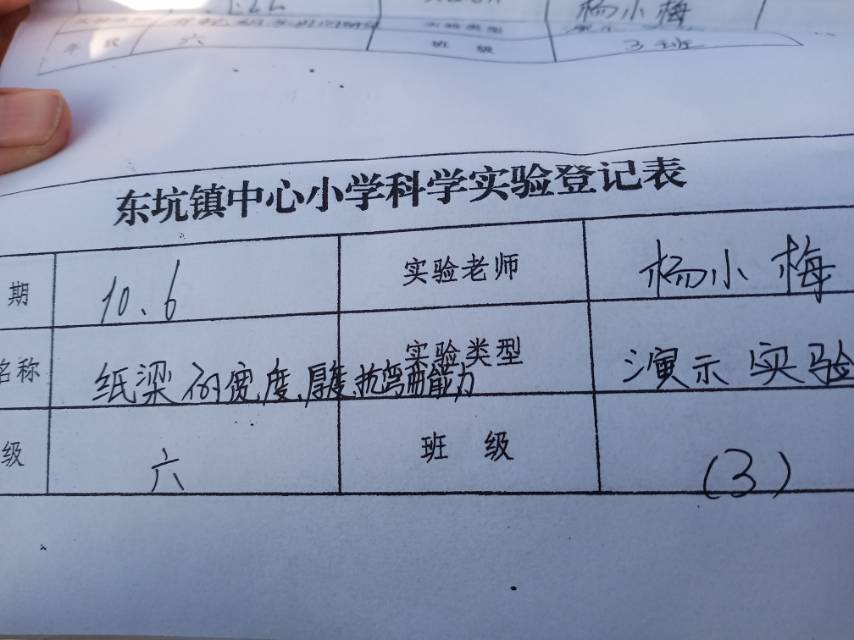 杨小梅
六 班 级 3班
东坑镇中心小学科学实验登记表
期 10.6 实验老师 杨小梅
名称 纸梁的宽度、厚度、抗弯曲能力 实验类型 演示实验
级 六 班 级 (3)